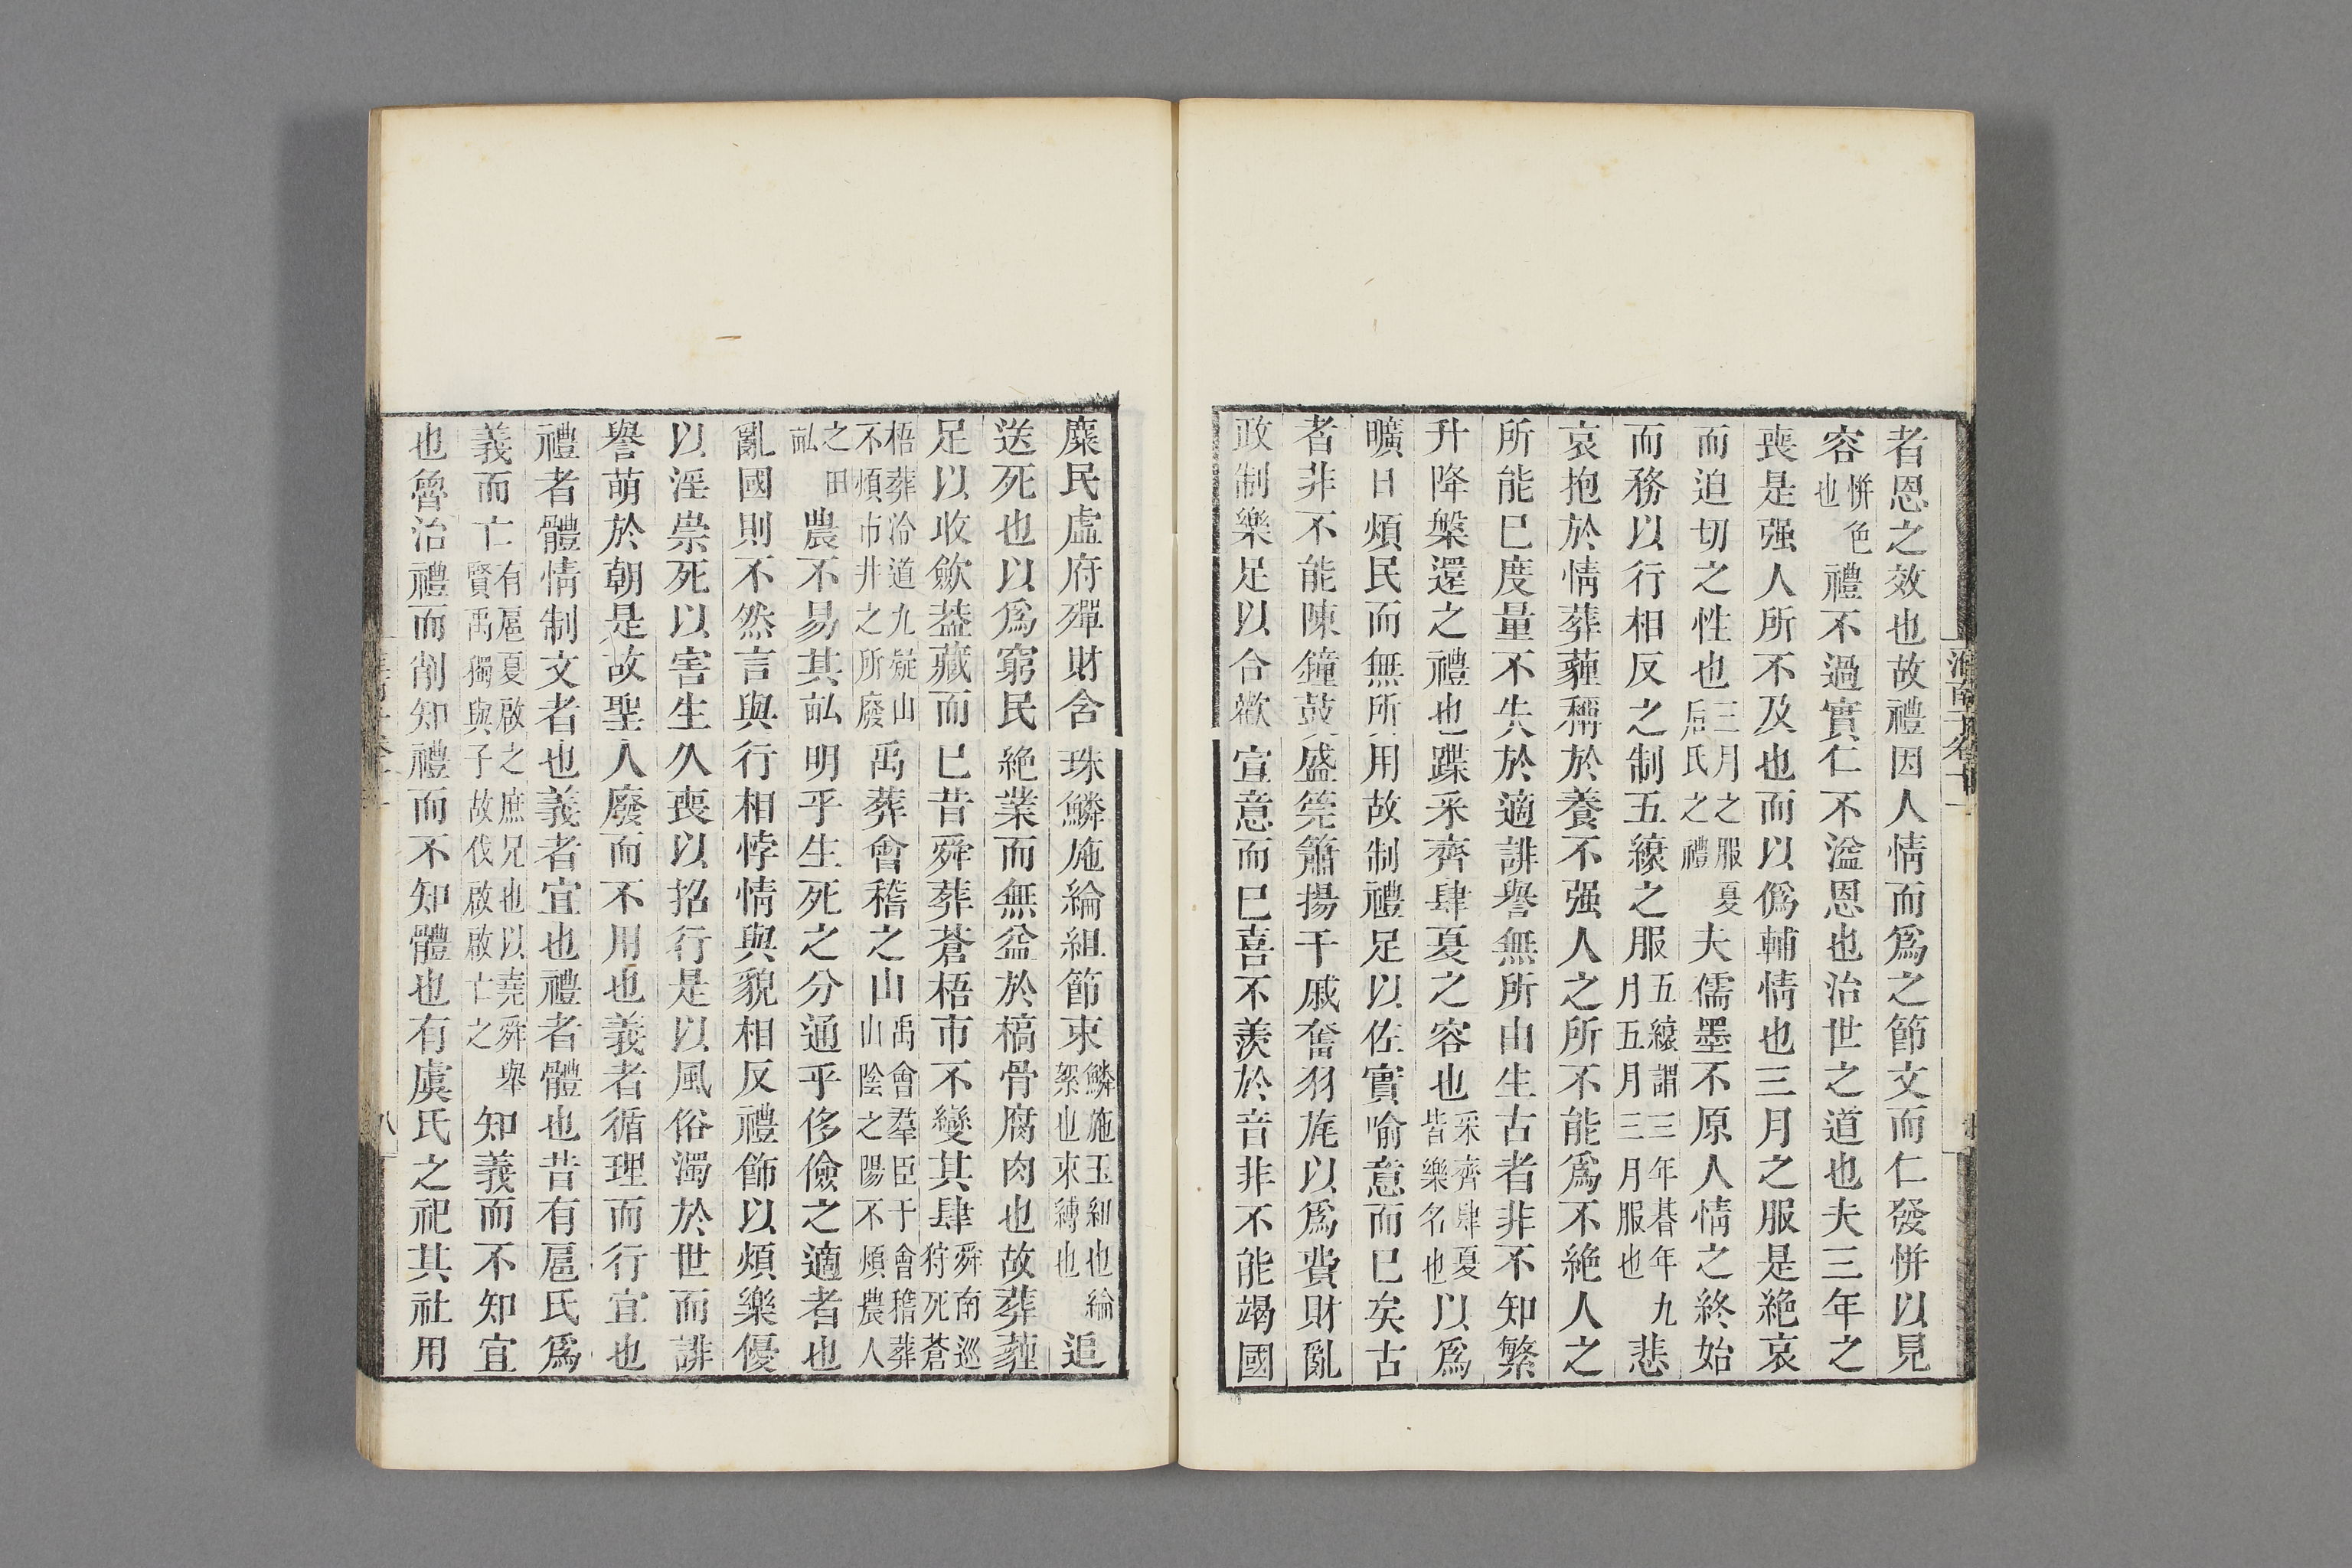 者恩之效也故禮因人情而爲之節文而仁發恲以見
容恲色也禮不過實仁不溢恩也治世之道也夫三年之
喪是强人所不及也而以僞輔情也三月之服是絶哀
而迫切之性也三月之服夏后氏之禮夫儒墨不原人情之終始
而務以行相反之制五縗之服五縗謂三年朞年九月五月三月服也悲
哀抱於情葬薶稱於養不强人之所不能爲不絶人之
所能已度量不失於適誹譽無所由生古者非不知繁
升降槃還之禮也蹀采齊肆夏之容也采齊肆夏皆樂名也以爲
曠日煩民而無所用故制禮足以佐實喻意而已矣古
者非不能陳鐘鼓盛筦簫揚干戚奮羽旄以爲費財亂
政制樂足以合歡宣意而已喜不羨於音非不能竭國
麋民虛府殫財含珠鱗施綸組節束鱗施玉紐也綸絮也束縛也追
送死也以爲窮民絶業而無益於槁骨腐肉也故葬薶
足以收斂葢藏而已昔舜葬蒼梧市不變其肆舜南巡狩死蒼
梧葬泠道九疑山不煩市井之所廢禹葬會稽之山禹會羣臣于會稽葬山陰之陽不煩農人
之田畝農不易其畝明乎生死之分通乎侈儉之適者也
亂國則不然言與行相悖情與貌相反禮飾以煩樂優
以淫崇死以害生久喪以招行是以風俗濁於世而誹
譽萌於朝是故聖人廢而不用也義者循理而行宜也
禮者體情制文者也義者宜也禮者體也昔有扈氏爲
義而亡有扈夏啟之庶兄也以堯舜舉賢禹獨與子故伐啟啟亡之知義而不知宜
也魯治禮而削知禮而不知體也有虞氏之祀其社用
八